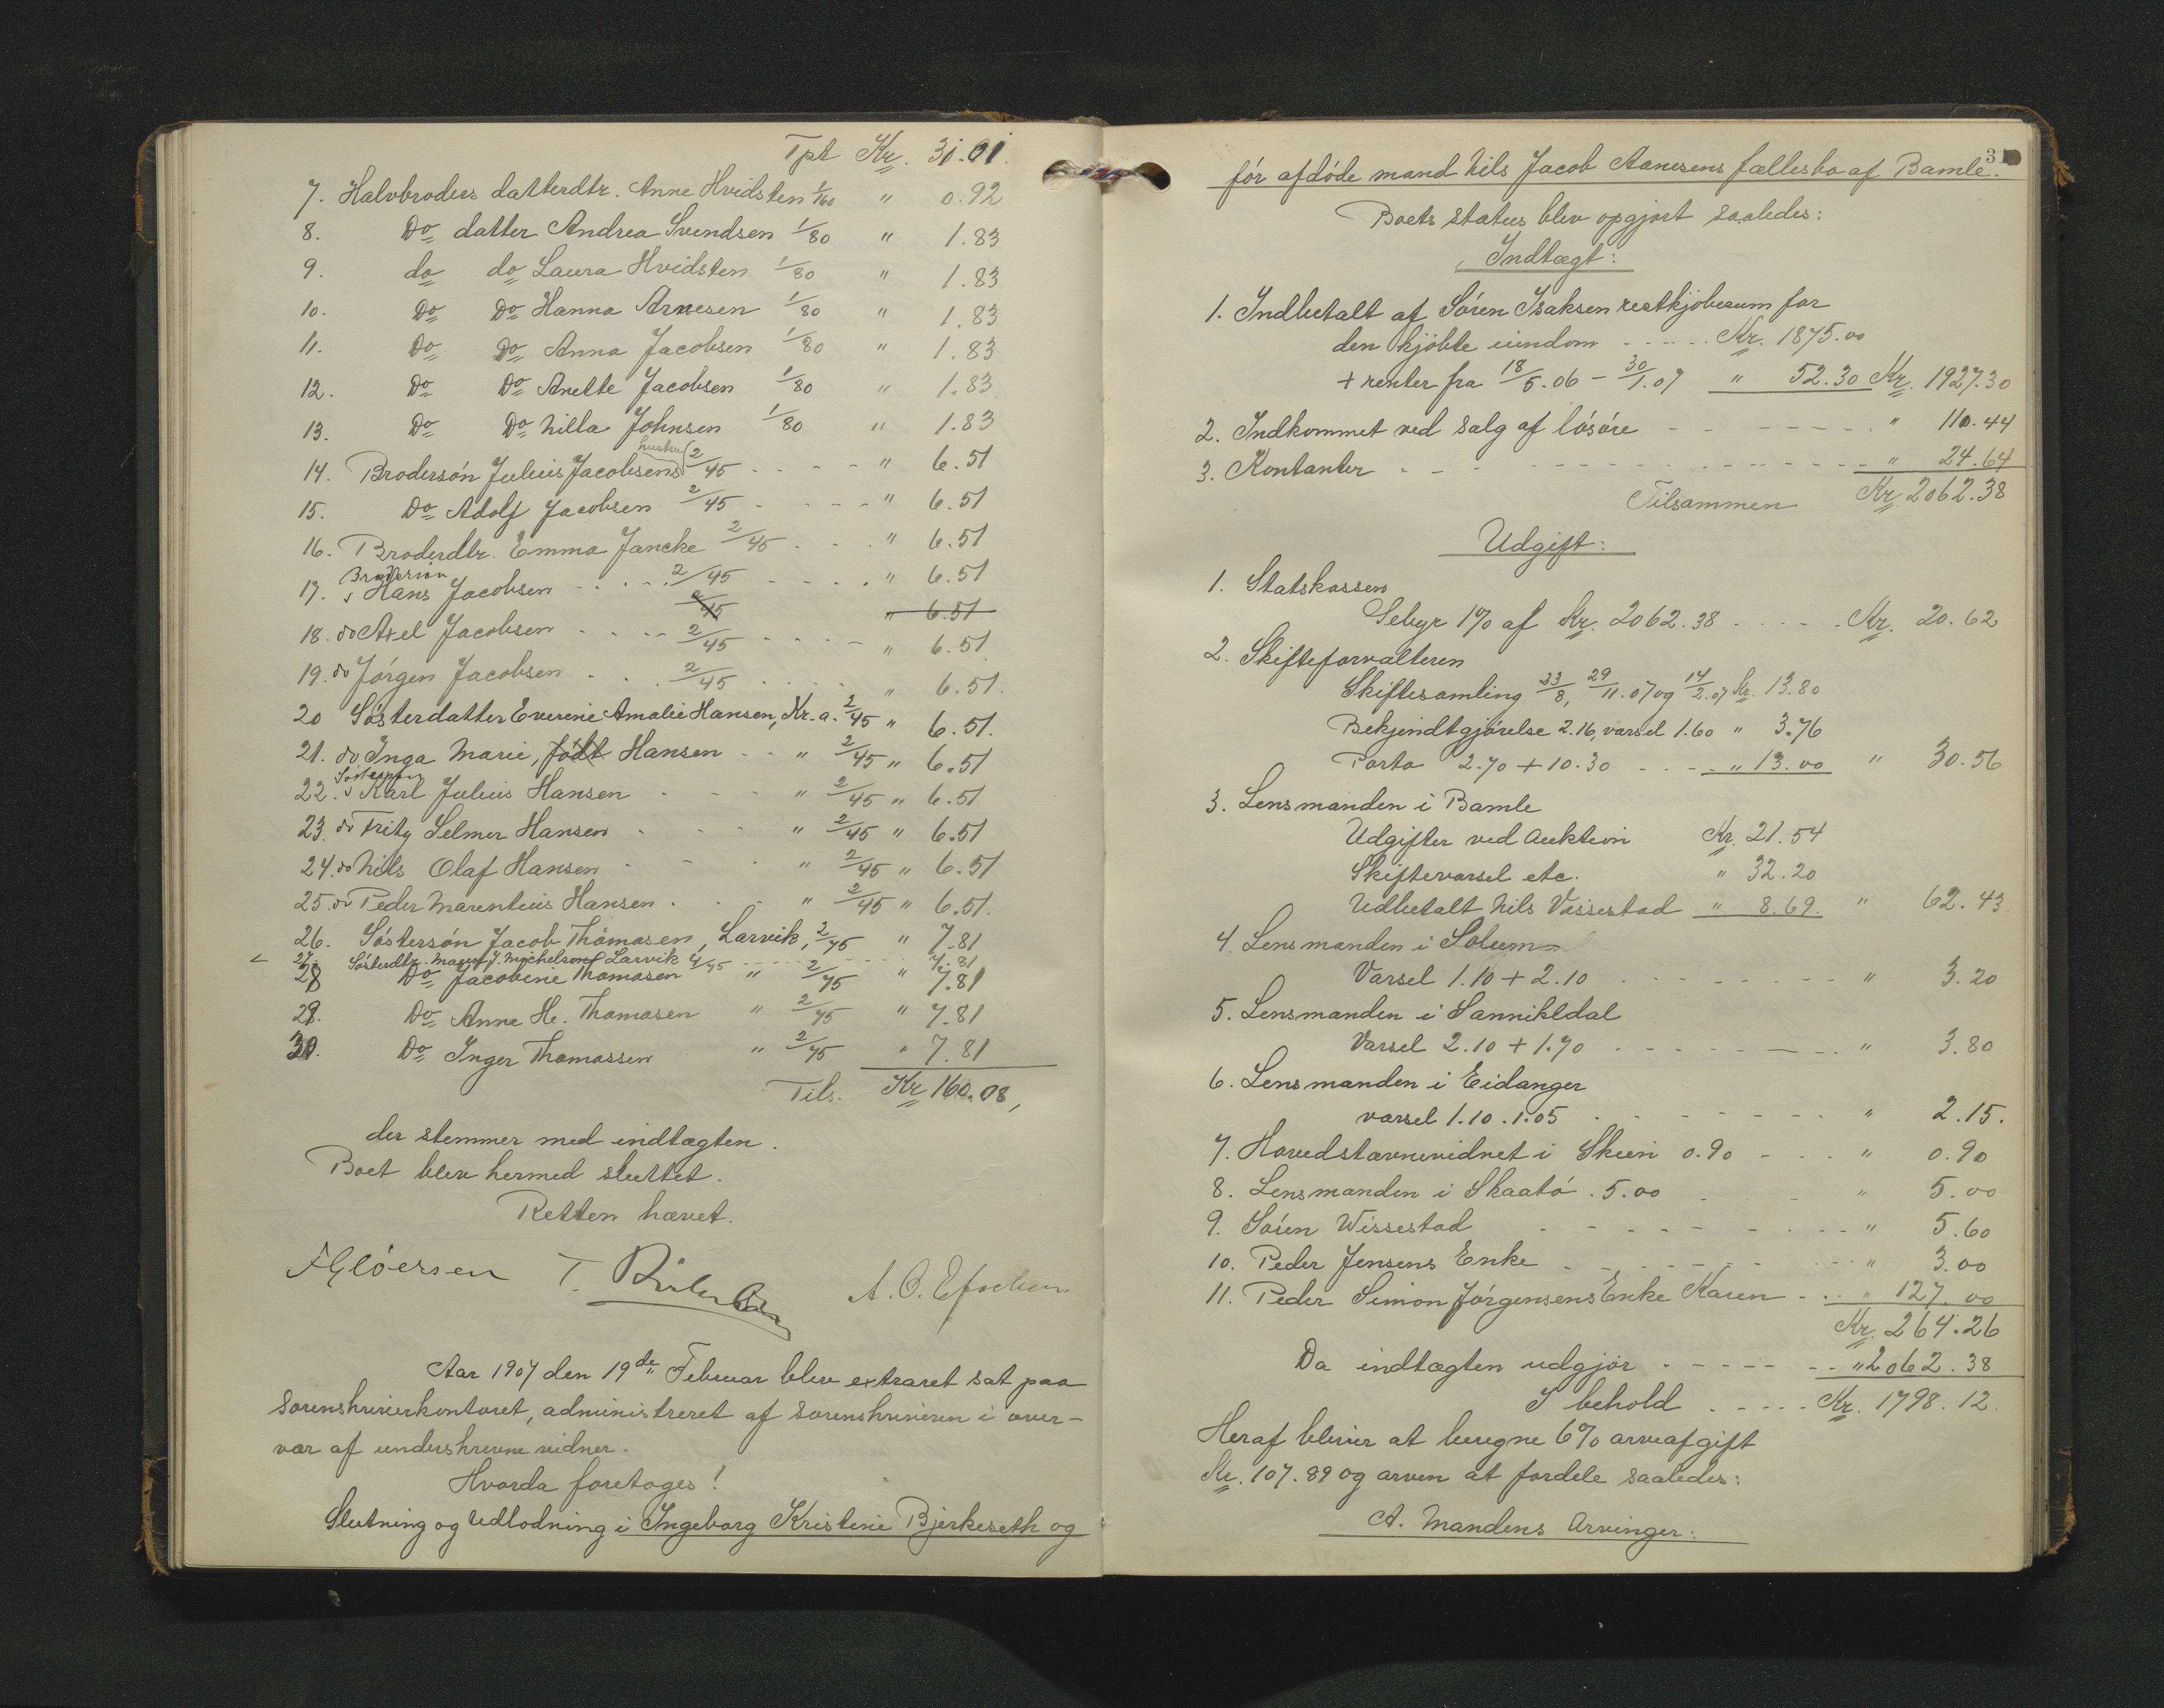 Tpt Kr. 31.01.
7. Halvbroders datterdtr. Anne Hvidsten 1/160 " 0.92
8. Do datter Andrea Svendsen 1/80 " 1.83
9. do do Laura Hvidsten 1/80 " 1.83
10. Do Do Hanna Arnesen 1/80 " 1.83
11. Do Do Anna Jacobsen 1/80 " 1.83
12. Do Do Anette Jacobsen 1/80 " 1.83
13. Do Do Nilla Johnsen 1/80 " 1.83
hustru
14. Brodersön Julius Jacobsens 2/45 - - - - " 6.51
15. Do Adolf Jacobsen 2/45 - - - - " 6.51
16. Broderdtr. Emma Jancke 2/45 - - - " 6.51
Brodersön
17. Hans Jacobsen - - - - 2/45 - - - - " 6.51
2/45 " 6.51
18. do Axel Jacobsen - - - - 2/45 - - - - " 6.51
19. do Jörgen Jacobsen . . . 2/45 . . . . " 6.51.
20 Sösterdatter Everine Amalie Hansen, Kr.a. 2/45 " 6.51.
21. do Inga Marie, født Hansen - - " 2/45 " 6.51
Söstersön
22. Karl Julius Hansen - - - " 2/45 " 6.51
23. do Fritz Selmer Hansen - - " 2/45 " 6.51
24. do Nils Olaf Hansen - - - " 2/45 " 6.51
25. do Peder Marentius Hansen . . . " 2/45 " 6.51.
26. Söstersön Jacob Thomasen, Larvik, 2/75 " 7.81
27. Sösterdtr. J. Mychelsen Larvik 2/75 - - - - 7.81
28 Do Jacobine Thomasen " 2/75 " 7.81
29. Do Anne He. Thomasen " 2/75 " 7.81
30. Do Inger Thomassen " 2/75 " 7.81
Tils. Kr 160.08,
der stemmer med indtægten.
Boet blev hermed sluttet.
Retten hævet.
FGlöersen T. A. O.
Aar 1907 den 19de Februar blev extraret sat paa
Sorenskriverkontoret, administreret af Sorenskriveren i over-
vær af underskrevne vidner.
Hvorda foretoges!
Slutning og Udlodning i Ingeborg Kristine Bjerkeseth og
3
för afdöde mand Nils Jacob Aanesens fællesbo af Bamle.
Boets status blev opgjort saaledes:
Indtægt:
1. Indbetalt af Sören Isaksen restkjöbesum for
den kjöbte eiendom - - - - - Kr. 1875.00
+ renter fra 18/5.06 - 30/1.07 " 52.30 Kr. 1927.30
2. Indkommet ved salg af lösöre - - - - - - - " 110.44
3. Kontanter - - - - - - - - - - - - - - " 24.64
Tilsammen Kr. 2062.38
Udgift:
1. Statskassen
Gebyr 1% af Kr. 2062.38 - - - - - Kr. 20.62
2. Skifteforvalteren
Skiftesamling 23/8, 29/11.07 og 14/2.07 Kr. 13.80
Bekjendtgjörelse 2.16, varsel 1.60 " 3.76
Porto 2.70 + 10.30 - - - - " 13.00 " 30.56
3. Lensmanden i Bamle
Udgifter ved Auktion Kr. 21.54
Skiftevarsel etc. " 32.20
Udbetalt Nils Vissestad " 8.69. " 62.43
4. Lensmanden i Solum
Varsel 1.10 + 2.10 - - - - - - - " 3.20
5. Lensmanden i Sannikedal
Varsel 2.10 + 1.70 - - - - - - - " 3.80
6. Lensmanden i Eidanger
varsel 1.10 . 1.05 - - - - - - - " 2.15.
7. Hovedstævnevidnet i Skien 0.90 - - - " 0.90
8. Lensmanden i Skaatö . 5.00 - - - " 5.00
9. Sören Wissestad - - - - - - - - " 5.60
10. Peder Jensens Enke - - - - - - - - " 3.00
11. Peder Simon Jörgensens Enke Karen - - - " 127.00
Kr. 264.26
Da indtægten udgjör - - - - - - " 2062.38
I behold - - - - - Kr. 1798.12
Heraf bliver at beregne 6% arveafgift
Kr. 107.89 og arven at fordele saaledes:
A. Mandens Arvinger: